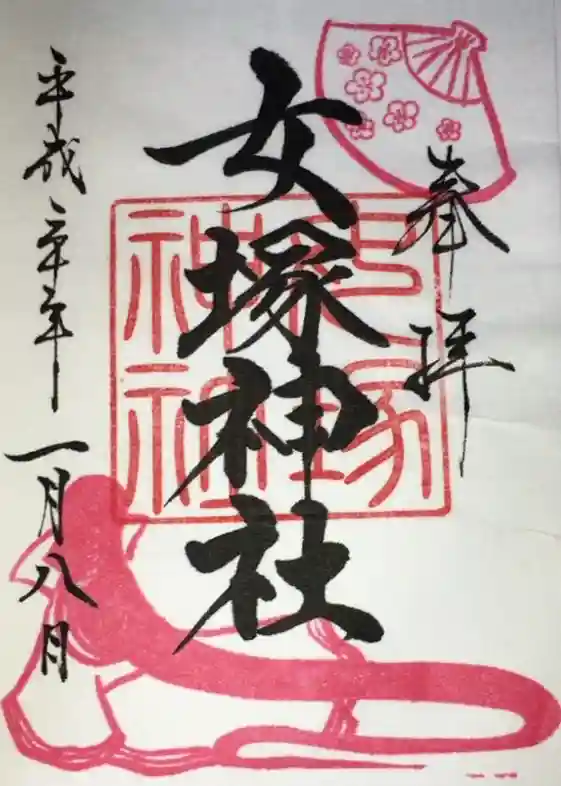 奉拝
女塚神社
女塚
神社
平成三十年一月八日